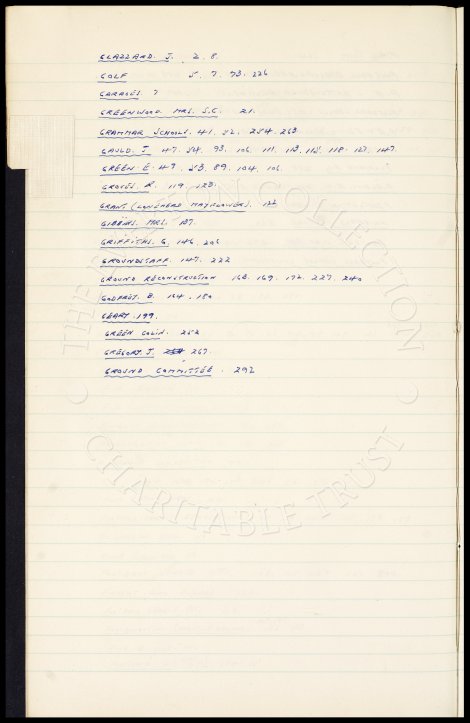 GLAZZARD. J. 2. 8.
GOLF 5. 7. 73. 226
GARAGES. 7
GREENWOOD. MRS. S.G. 21.
GRAMMAR SCHOOLS. 41. 52. 254. 263
GAULD. J 47. 54. 93. 106. 111. 113. 115. 118. 127. 147.
GREEN. E. 49. 53. 89. 104. 106.
GROVES. R. 119. 123.
GRANT (LONGHEAD MAYFLOWER). 122
GIBBINS. MRS. 137.
GRIFFITHS. G. 146. 206
GROUNDSTAFF. 147. 222
GROUND RECONSTRUCTION 168. 169. 172. 227. 240
GODFREY. B. 164. 180
GEARY. 199.
GREEN COLIN. 252
GREGORY. J. 267.
GROUND COMMITTEE. 292
THE COLLECTION
CHARITABLE TRUST